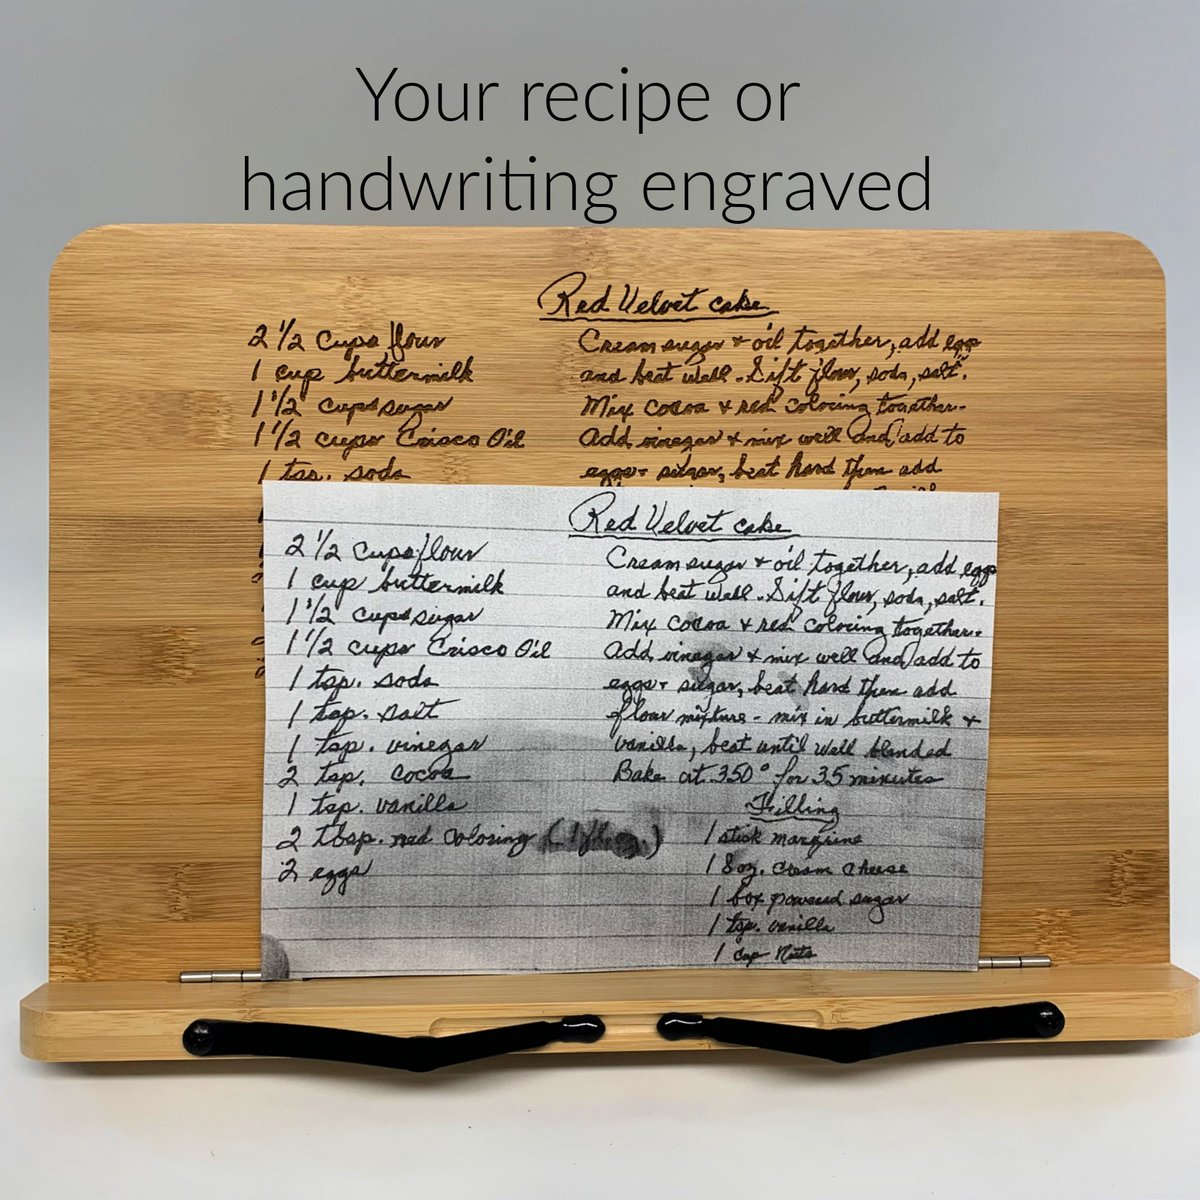 Your recipe or
handwriting engraved
Red Velvet cake
2 1/2 cups flour
1 cup buttermilk
1 1/2 cups sugar
1 1/2 cups Crisco Oil
1 tsp. soda
Cream sugar + oil together, add egg
and beat well. Sift flour, soda, salt.
Mix cocoa & red coloring together.
Add vinegar & mix well and add to
eggs + sugar, beat hard then add
Red Velvet cake
2 1/2 cups flour
1 cup buttermilk
1 1/2 cups sugar
1 1/2 cups Crisco Oil
1 tsp. soda
1 tsp. salt
1 tsp. vinegar
2 tsp. cocoa
1 tsp. vanilla
2 tbsp. red coloring
2 eggs
Cream sugar + oil together, add eggs
and beat well. Sift flour, soda, salt.
Mix cocoa & red coloring together.
Add vinegar & mix well and add to
eggs + sugar, beat hard then add
flour mixture - mix in buttermilk &
vanilla, beat until well blended
Bake at 350° for 35 minutes
Filling
1 stick margrine
1 8oz. cream cheese
1 box powered sugar
1 tsp. vanilla
1 cup Nuts